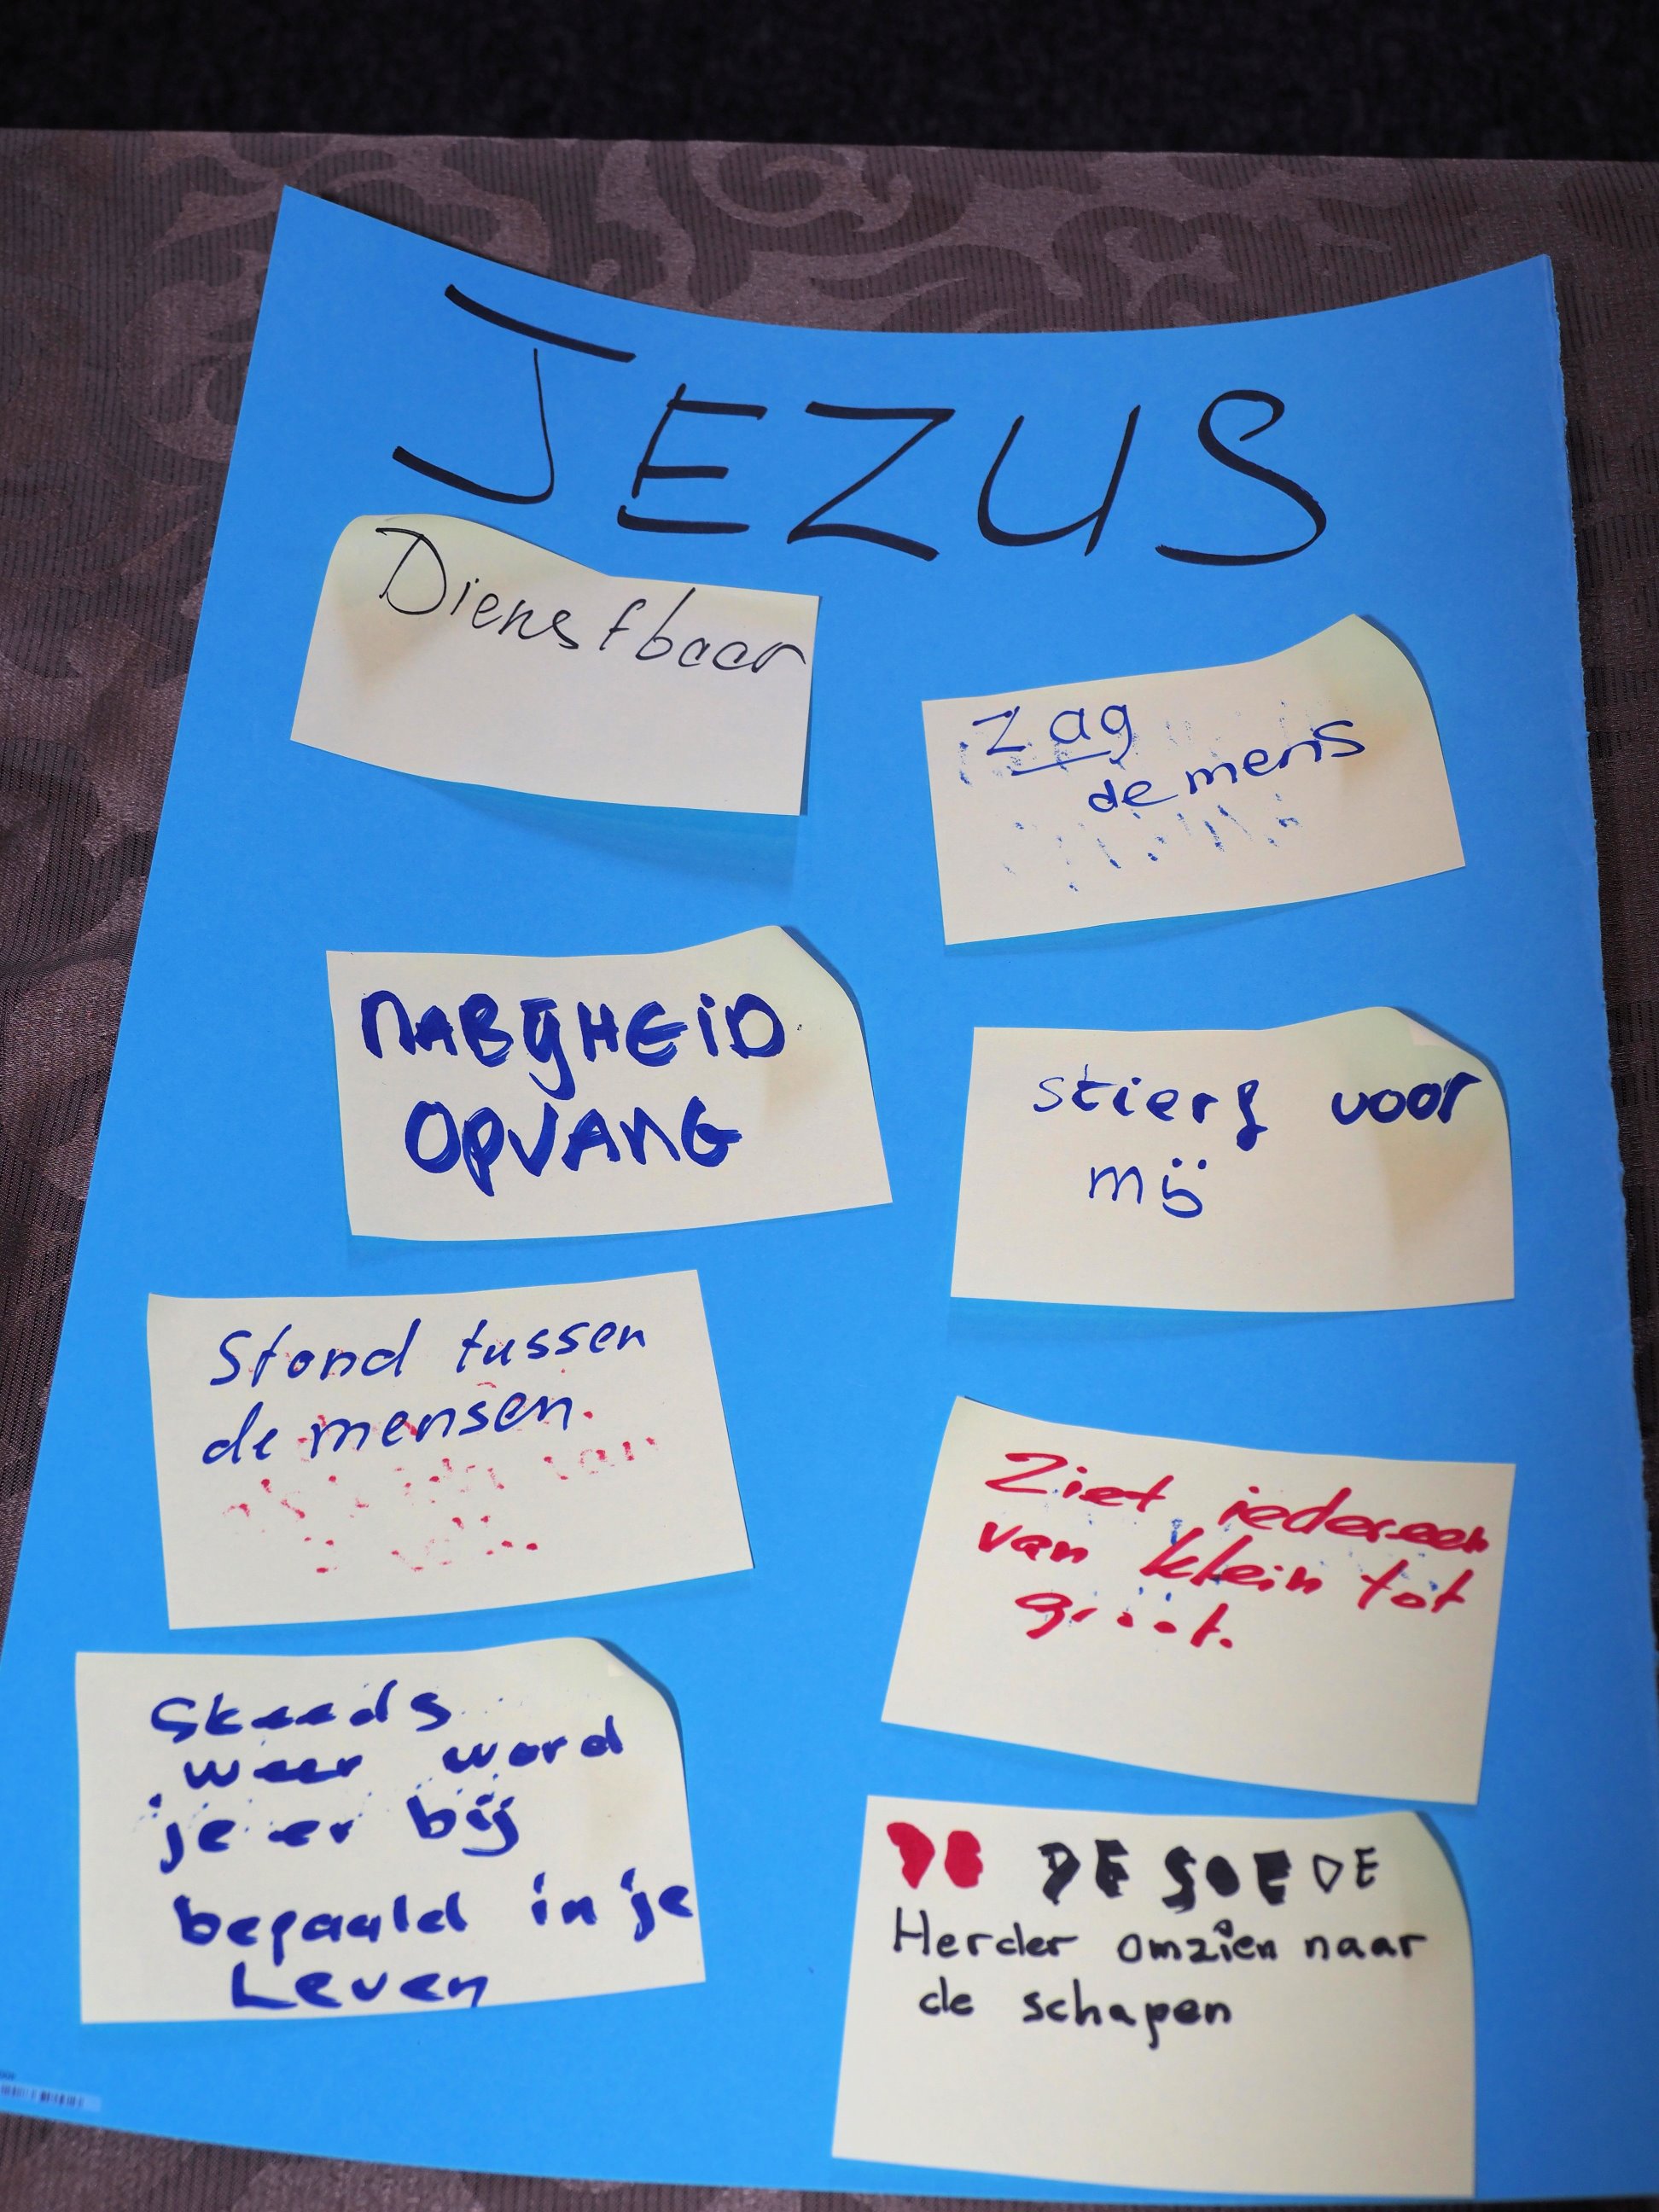 JEZUS
Dienstbaar
Zag
de mens
NABIJHEID
OPVANG
stierf voor
mij
Stond tussen
de mensen.
Ziet iedereen
van klein tot
groot.
Steeds
weer word
je er bij
bepaald in je
Leven
DE GOEDE
Herder omzien naar
de schapen